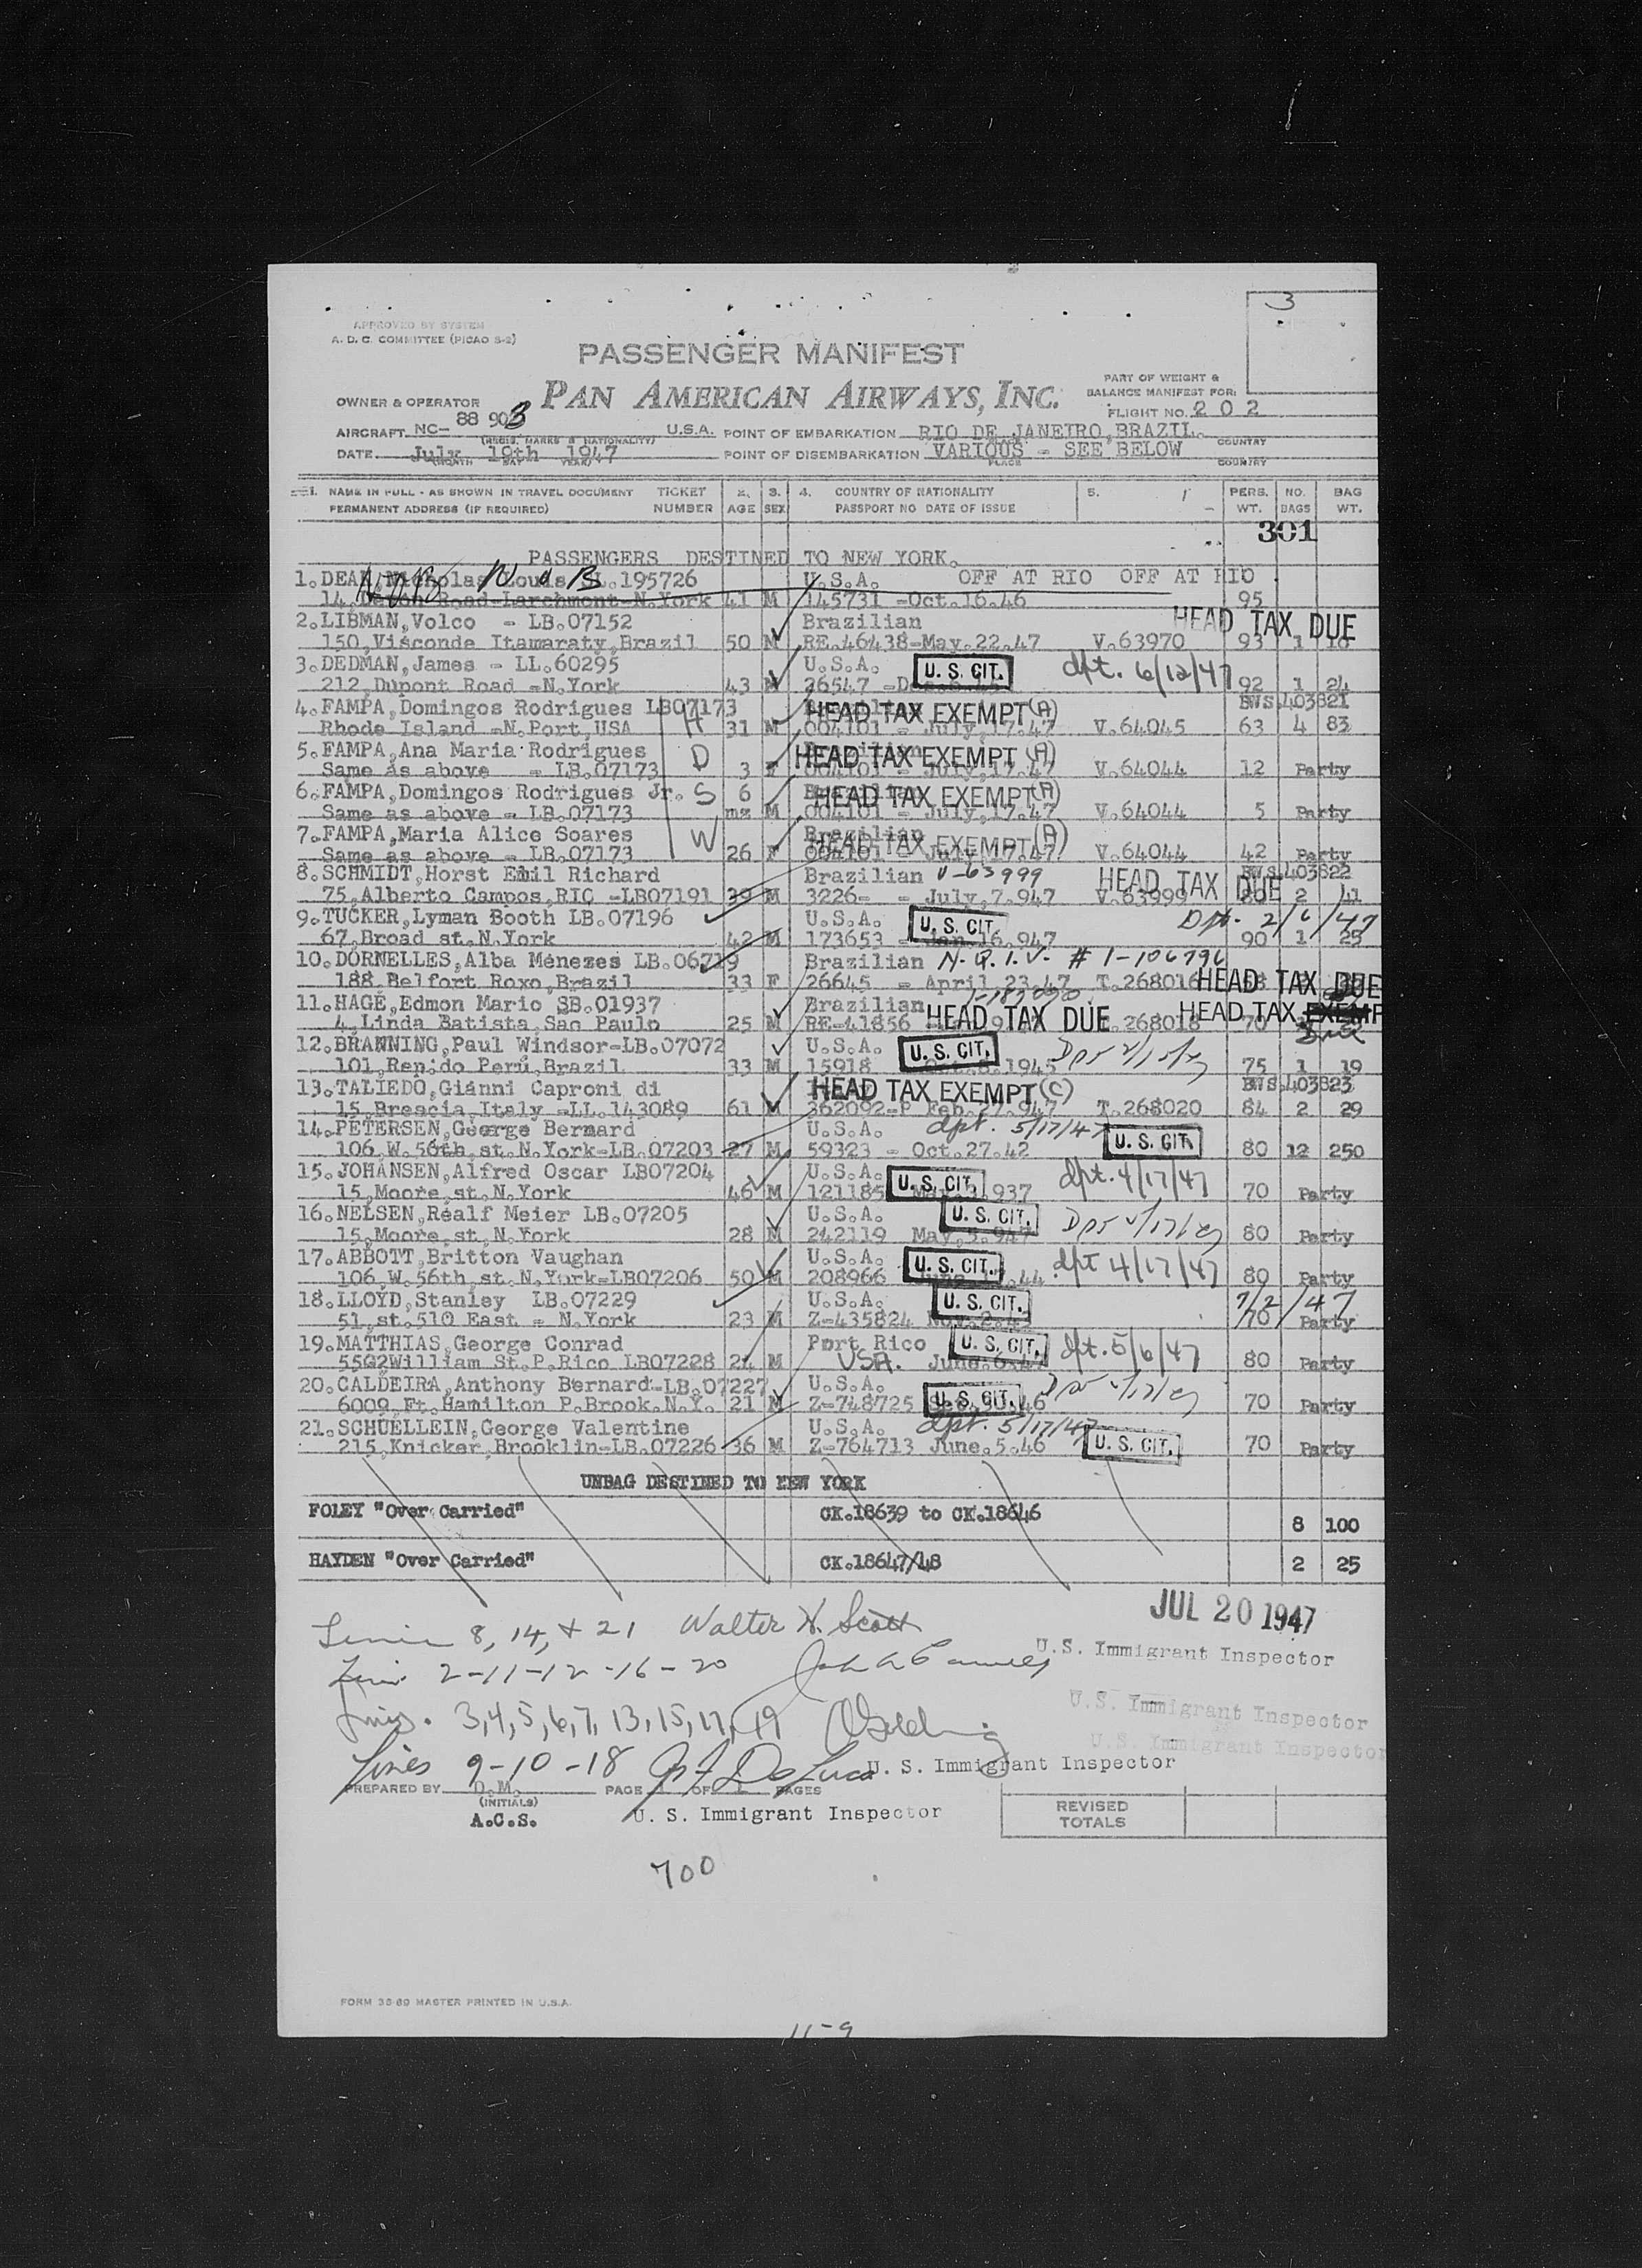 3
APPROVED BY SYSTEM
A. D. C. COMMITTEE (PICAO S-2)
PASSENGER MANIFEST
PAN AMERICAN AIRWAYS, INC.
PART OF WEIGHT &
BALANCE MANIFEST FOR:
OWNER & OPERATOR
FLIGHT NO. 2 0 2
AIRCRAFT NC- 88 903 U.S.A. POINT OF EMBARKATION RIO DE JANEIRO, BRAZIL.
(REGIS. MARKS & NATIONALITY) PLACE COUNTRY
DATE July 19th 1947 POINT OF DISEMBARKATION VARIOUS - SEE BELOW
(MONTH DAY YEAR) PLACE COUNTRY
1. NAME IN FULL - AS SHOWN IN TRAVEL DOCUMENT TICKET 2. 3. 4. COUNTRY OF NATIONALITY 5. PERS. NO. BAG
PERMANENT ADDRESS (IF REQUIRED) NUMBER AGE SEX PASSPORT NO DATE OF ISSUE WT. BAGS WT.
301
PASSENGERS DESTINED TO NEW YORK.
1. DEAN, Nicholas Louis 195726 U.S.A. OFF AT RIO OFF AT RIO
14, Road-Larchmont-N.York 41 M 145731 -Oct.16.46 95
2. LIBMAN, Volco - LB.07152 Brazilian HEAD TAX DUE
150, Visconde Itamaraty, Brazil 50 M RE.46438-May.22.47 V.63970 93 1 18
3. DEDMAN, James - LL.60295 U.S.A. U. S. CIT. dpt. 6/12/47
212, Dupont Road -N.York 43 M 26547 92 1 24
4. FAMPA, Domingos Rodrigues LB07173 HEAD TAX EXEMPT (A) BWS.403821
Rhode Island -N.Port, USA H 31 M 004101 - July, 17.47 V.64045 63 4 83
5. FAMPA, Ana Maria Rodrigues D HEAD TAX EXEMPT (A)
Same as above - LB.07173 3 F 004101 - July, 17.47 V.64044 12 Party
6. FAMPA, Domingos Rodrigues Jr. S 6 HEAD TAX EXEMPT (A)
Same as above - LB.07173 ms M 004101 - July, 17.47 V.64044 5 Party
7. FAMPA, Maria Alice Soares W Brazilian HEAD TAX EXEMPT (A)
Same as above - LB.07173 26 F 004101 - July, 17.47 V.64044 42 Party
8. SCHMIDT, Horst Emil Richard Brazilian V-63999 HEAD TAX DUE BWS.403822
75, Alberto Campos, RIO -LB07191 39 M 3226- - July, 7.947 V.63999 80 2 41
9. TUCKER, Lyman Booth LB.07196 U.S.A. U. S. CIT. Dpt. 2/6/47
67, Broad st.N.York 42 M 173653 - Jan.16.947 90 1 25
10. DORNELLES, Alba Menezes LB.06719 Brazilian N. Q. I. V. # 1-106796
188, Belfort Roxo, Brazil 33 F 26645 - April.23.47 T.268016 HEAD TAX DUE
11. HAGE, Edmon Mario SB.01937 Brazilian HEAD TAX DUE HEAD TAX EXEMP
4, Linda Batista, Sao Paulo 25 M RE-41856 T.268018 70 Due
12. BRANNING, Paul Windsor-LB.07072 U.S.A. U. S. CIT.
101, Ren.do Perú, Brazil 33 M 15918 1945 75 1 19
13. TALIEDO, Gianni Caproni di HEAD TAX EXEMPT (C) BWS.403823
15, Brescia, Italy -LL.143089 61 M 362092-P Feb.27.947 T.268020 84 2 29
14. PETERSEN, George Bernard U.S.A. dpt. 5/17/47 U. S. CIT.
106, W. 56th, st.N.York-LB.07203 27 M 59323 - Oct.27.42 80 12 250
15. JOHANSEN, Alfred Oscar LB07204 U.S.A. U. S. CIT. dpt. 4/17/47
15, Moore, st.N.York 46 M 121185 937 70 Party
16. NELSEN, Realf Meier LB.07205 U.S.A. U. S. CIT.
15, Moore, st, N.York 28 M 242119 May, 5.947 80 Party
17. ABBOTT, Britton Vaughan U.S.A. U. S. CIT. dpt 4/17/47
106, W. 56th, st.N.York-LB07206 50 M 208966 44 80 Party
18. LLOYD, Stanley LB.07229 U.S.A. U. S. CIT. 7/2/47
51, st.510 East - N.York 23 M Z-435824 70 Party
19. MATTHIAS, George Conrad Port Rico U. S. CIT. dpt. 5/6/47
55G2William St.P.Rico LB07228 24 M USA. 80 Party
20. CALDEIRA, Anthony Bernard-LB.07227 U.S.A. U. S. CIT.
6009, Ft. Hamilton P.Brook.N.Y. 21 M Z-748725 46 70 Party
21. SCHUELLEIN, George Valentine U.S.A. dpt. 5/17/47
215, Knicker, Brooklin-LB.07226 36 M Z-764713 June.5.46 U. S. CIT. 70 Party
UNBAG DESTINED TO NEW YORK
FOLEY "Over Carried" CK.18639 to CK.18646 8 100
HAYDEN "Over Carried" CK.18647/48 2 25
JUL 20 1947
8, 14, + 21 Walter H. Scott
U.S. Immigrant Inspector
2-11-12-16-20
U.S. Immigrant Inspector
3,4,5,6,7, 13, 15, 17, 19
U.S. Immigrant Inspector
Lines 9-10-18 De Luca U. S. Immigrant Inspector
PREPARED BY D.M. PAGE 1 OF 1 PAGES
(INITIALS)
A.C.S. U. S. Immigrant Inspector
REVISED
TOTALS
700
FORM 36-89 MASTER PRINTED IN U.S.A.
11-9